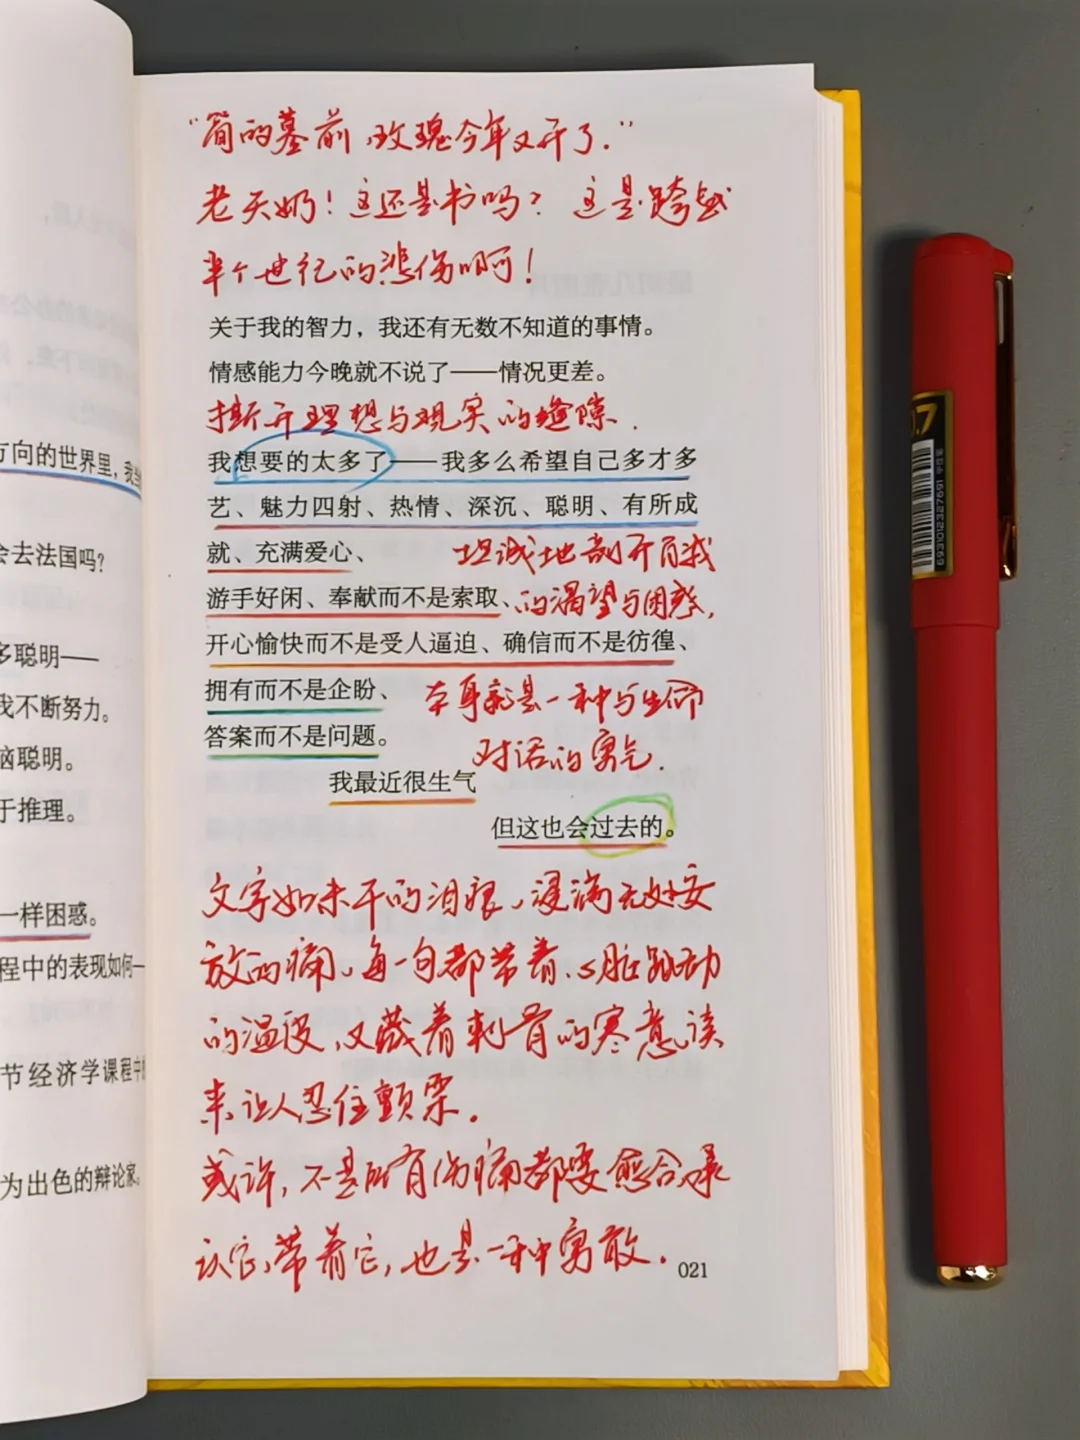 方向的世界里，我
会去法国吗？
多聪明——
我不断努力。
脑聪明。
于推理。
一样困惑。
程中的表现如何—
节经济学课程中
为出色的辩论家。
“简的墓前，玫瑰今年又开了.”
老天奶！这还是书吗？这是跨越
半个世纪的悲伤啊！
关于我的智力，我还有无数不知道的事情。
情感能力今晚就不说了——情况更差。
撕开理想与现实的缝隙.
我想要的太多了——我多么希望自己多才多
艺、魅力四射、热情、深沉、聪明、有所成
就、充满爱心、
坦诚地剖开自我
游手好闲、奉献而不是索取、
的渴望与困惑，
开心愉快而不是受人逼迫、确信而不是彷徨、
拥有而不是企盼、
本身就是一种与生命
答案而不是问题。
对话的勇气.
我最近很生气
但这也会过去的。
文字如未干的泪痕，浸满无处安
放的痛，每一句都带着心脏跳动
的温度，又藏着刺骨的寒意读
来让人忍住颤栗。
或许，不是所有伤痛都要愈合承
认它，带着它，也是一种勇敢.
021
0.7
6931032327691